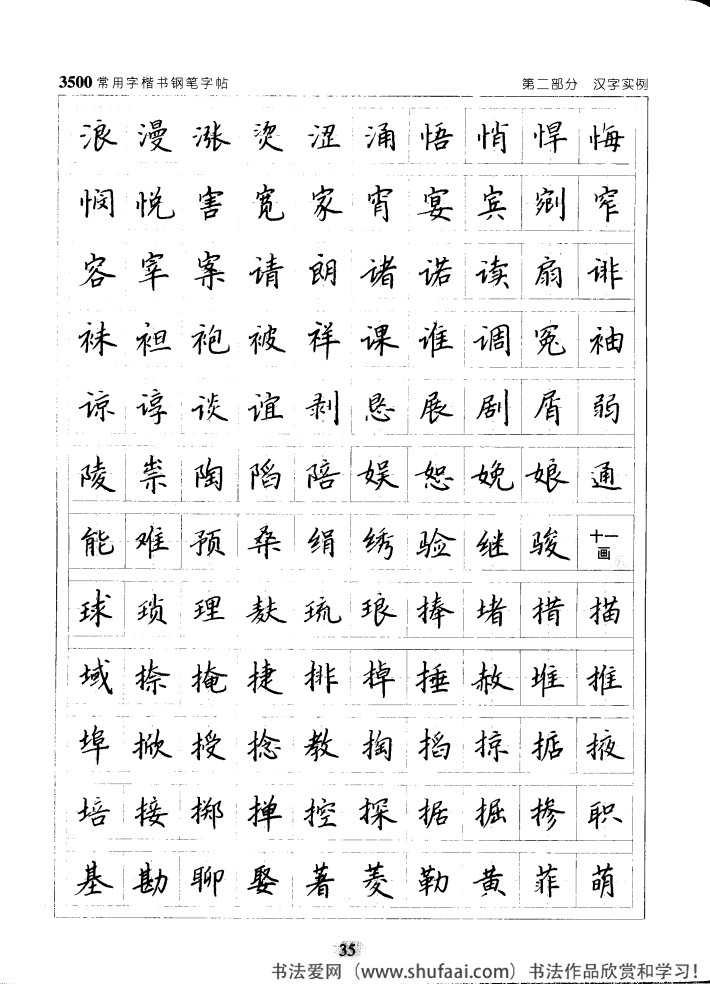 3500常用字楷书钢笔字帖 第二部分 汉字实例
浪 漫 涨 烫 涩 涌 悟 悄 悍 悔
悯 悦 害 宽 家 宵 宴 宾 剜 窄
容 宰 案 请 朗 诸 诺 读 扇 诽
袜 袒 袍 被 祥 课 谁 调 冤 袖
谅 谆 谈 谊 剥 恳 展 剧 屑 弱
陵 祟 陶 陷 陪 娱 恕 娩 娘 通
能 难 预 桑 绢 绣 验 继 骏 十一画
球 琐 理 麸 琉 琅 捧 堵 措 描
域 捺 掩 捷 排 掉 捶 赦 堆 推
埠 掀 授 捻 教 掏 掐 掠 掂 掖
培 接 掷 掸 控 探 据 掘 掺 职
基 勘 聊 娶 著 菱 勒 黄 菲 萌
35
书法爱网（www.shufaai.com）书法作品欣赏和学习！